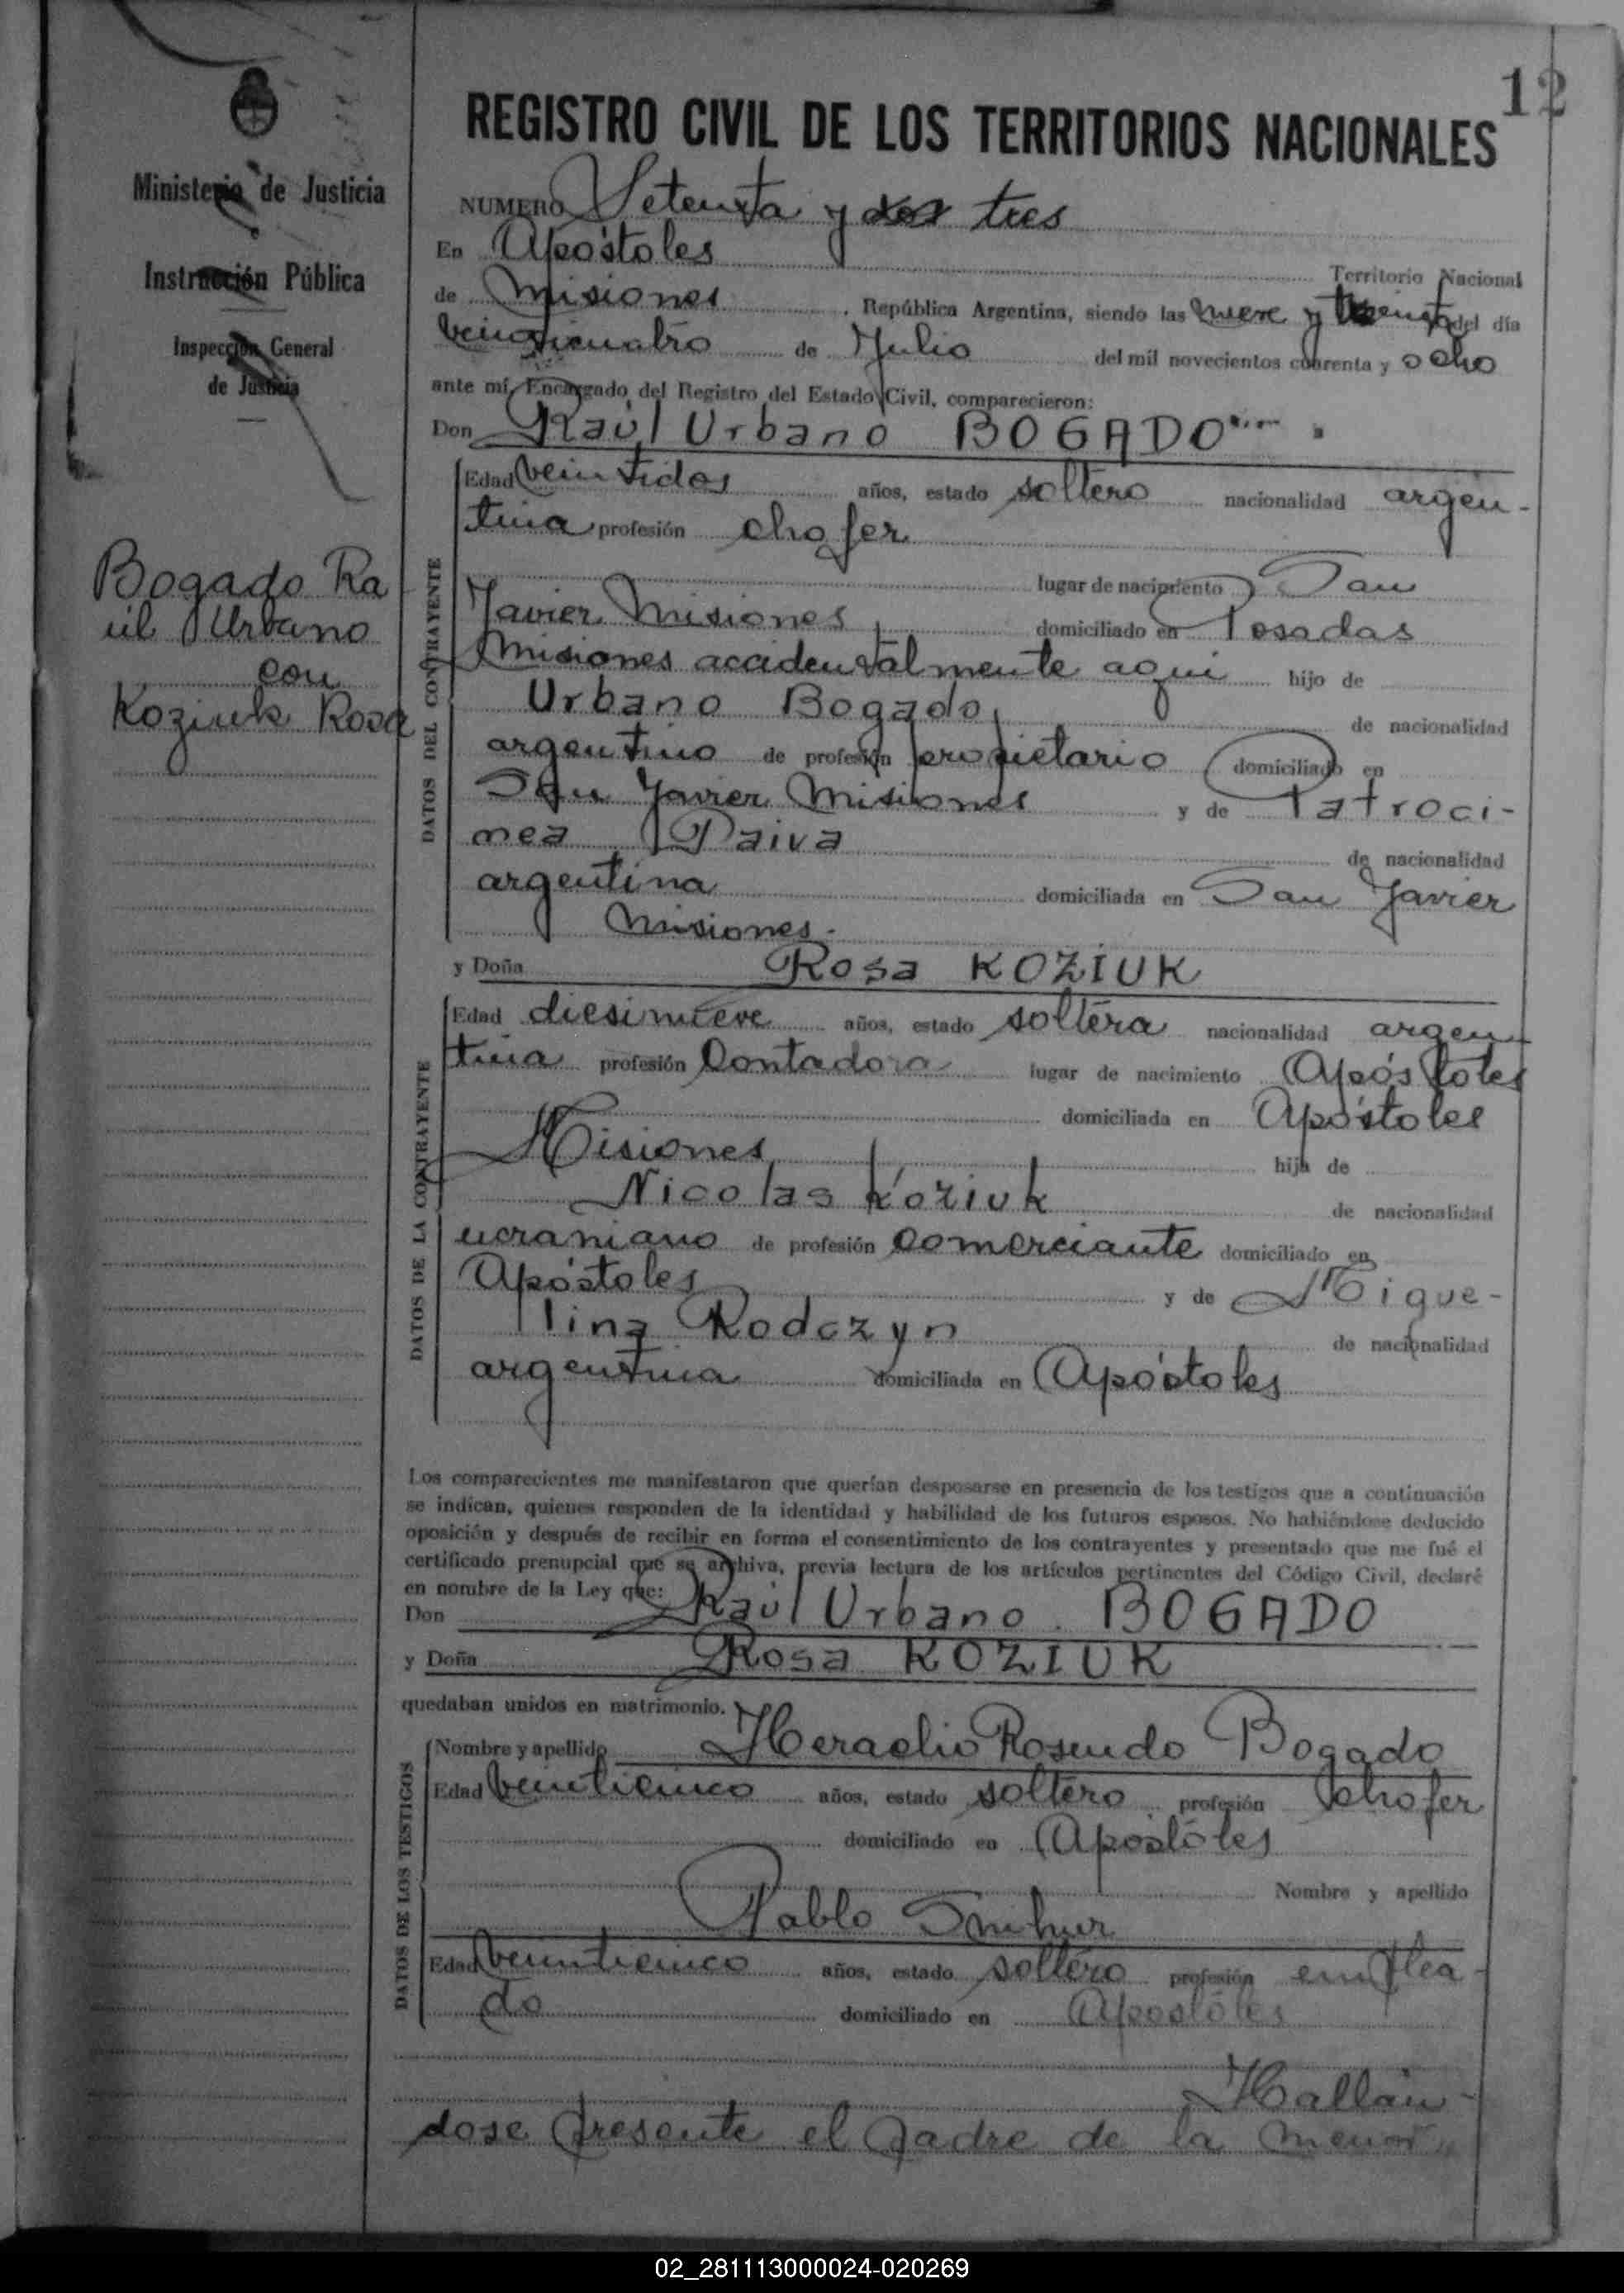 12
REGISTRO CIVIL DE LOS TERRITORIOS NACIONALES
Ministerio de Justicia
Instrucción Pública
Inspección General
de Justicia
Bogado Ra
úl Urbano
con
Koziuk Rosa
NUMERO Setenta y dos tres
En Apóstoles Territorio Nacional
de Misiones, República Argentina, siendo las nueve y treinta del día
veinticuatro de Julio del mil novecientos cuarenta y ocho
ante mí, Encargado del Registro del Estado Civil, comparecieron:
Don Raúl Urbano BOGADO
DATOS DEL CONTRAYENTE
Edad veintidos años, estado soltero nacionalidad argen-
tina profesión chofer
lugar de nacimiento San
Javier Misiones domiciliado en Posadas
Misiones accidentalmente aquí hijo de
Urbano Bogado, de nacionalidad
argentino de profesión propietario domiciliado en
San Javier Misiones y de Patroci-
nea Paiva de nacionalidad
argentina domiciliada en San Javier
Misiones.
y Doña Rosa KOZIUK
DATOS DE LA CONTRAYENTE
Edad diesinueve años, estado soltera nacionalidad argen-
tina profesión Contadora lugar de nacimiento Apóstoles
domiciliada en Apóstoles
Misiones hija de
Nicolas Koziuk de nacionalidad
ucraniano de profesión comerciante domiciliado en
Apóstoles y de Migue-
lina Rodczyn de nacionalidad
argentina domiciliada en Apóstoles
Los comparecientes me manifestaron que querían desposarse en presencia de los testigos que a continuación
se indican, quienes responden de la identidad y habilidad de los futuros esposos. No habiéndose deducido
oposición y después de recibir en forma el consentimiento de los contrayentes y presentado que me fué el
certificado prenupcial que se archiva, previa lectura de los artículos pertinentes del Código Civil, declaré
en nombre de la Ley que:
Don Raúl Urbano BOGADO
y Doña Rosa KOZIUK
quedaban unidos en matrimonio.
DATOS DE LOS TESTIGOS
Nombre y apellido Heraclio Rosendo Bogado
Edad veinticinco años, estado soltero profesión chofer
domiciliado en Apostóles
Nombre y apellido
Pablo Smhur
Edad veinticinco años, estado soltero profesión emplea-
do domiciliado en Apostóles
Hallán-
dose presente el padre de la menor
02_281113000024-020269